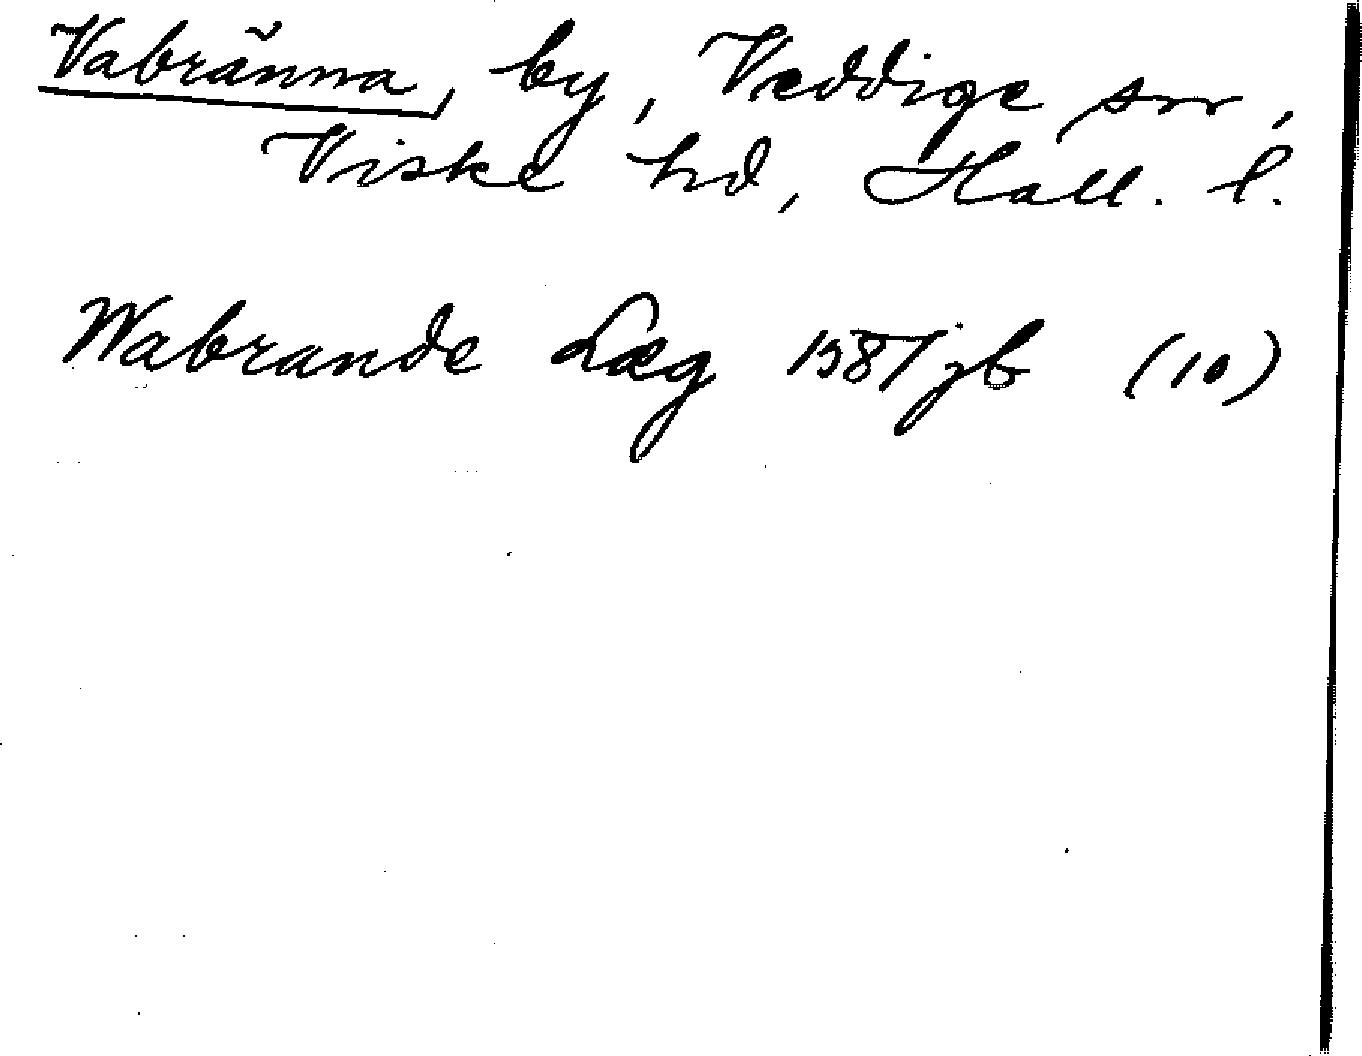 Vabränna, by, Veddige sn,
Viske hd, Hall. l.
Wabrande Læg 1587 jb (10)